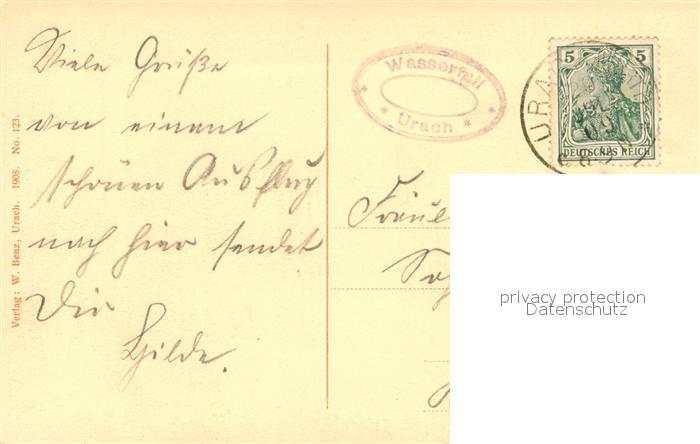 Viele Grüße
von einem
schönen Ausflug
nach hier sendet
Dir
Hilde.
Verlag: W. Benz, Urach. 1908. No. 123.
Wasserfall
* * * *
Urach
URA
5 5
DEUTSCHES REICH
Fräul
So
privacy protection
Datenschutz